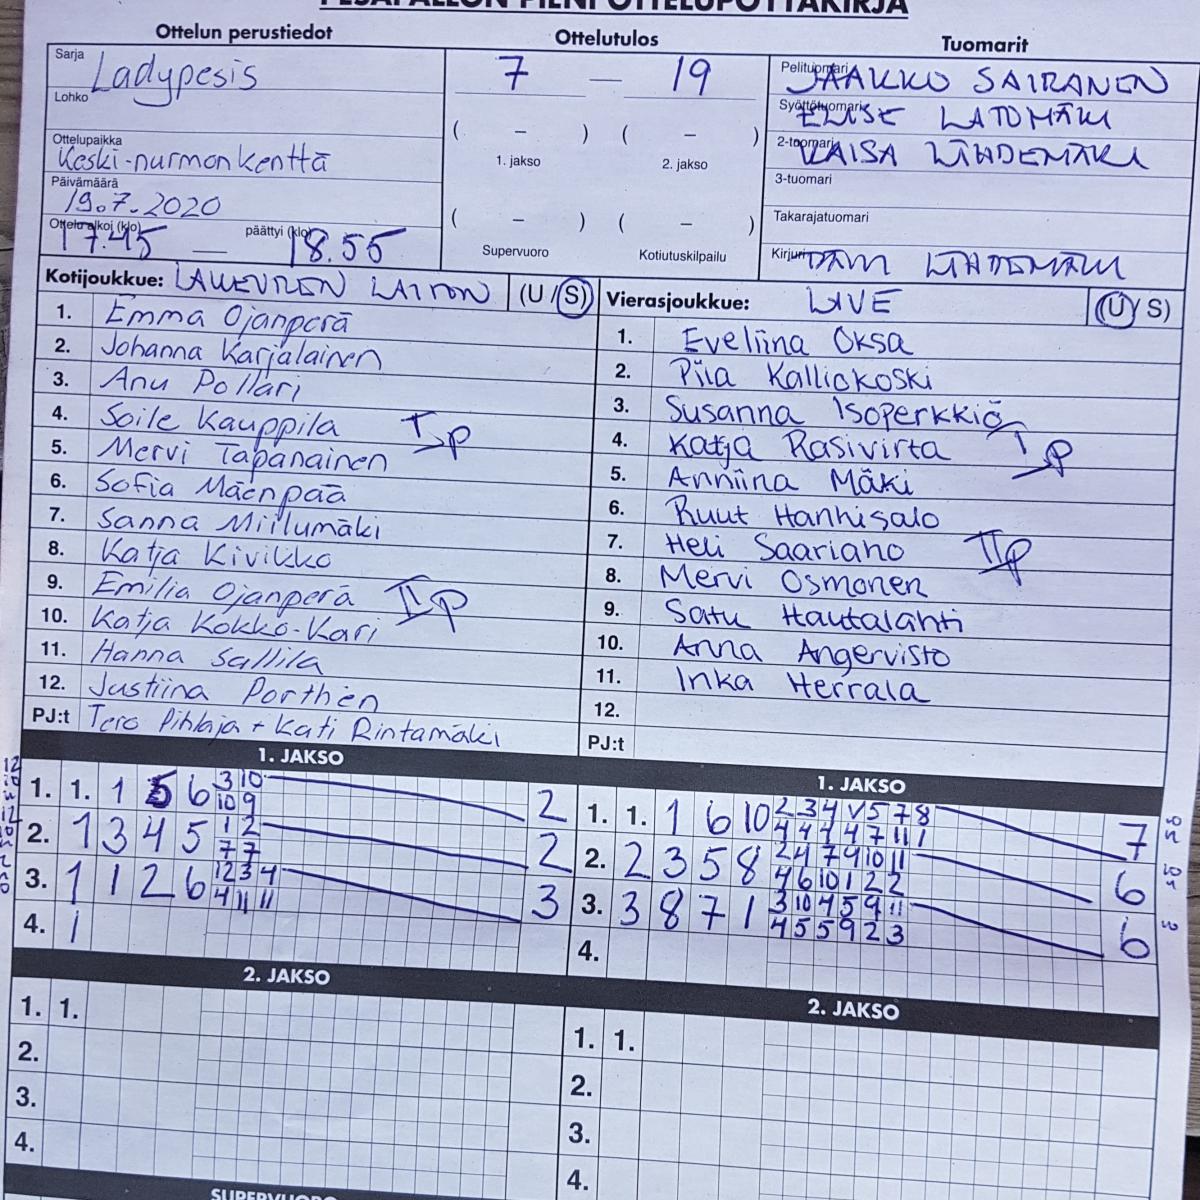 PESÄPALLON PIENI OTTELUPÖYTÄKIRJA
Ottelun perustiedot
Ottelutulos
Tuomarit
Sarja Ladypesis
Lohko
Ottelupaikka Keski-nurmon kenttä
Päivämäärä 19.7.2020
Ottelu alkoi (klo) 17.45 — päättyi (klo) 18.55
7 — 19
( – ) ( – )
1. jakso 2. jakso
( – ) ( – )
Supervuoro Kotiutuskilpailu
Pelituomari JAAKKO SAIRANEN
Syöttötuomari ELISE LATOMÄKI
2-tuomari KAISA LÄHDEMÄKI
3-tuomari
Takarajatuomari
Kirjuri LÄHDEMÄKI
Kotijoukkue: (U / S)
1. Emma Ojanperä
2. Johanna Karjalainen
3. Anu Pollari
4. Soile Kauppila I p
5. Mervi Tapanainen
6. Sofia Mäenpää
7. Sanna Myllumäki
8. Katja Kivikko
9. Emilia Ojanperä II p
10. Katja Kokko-Kari
11. Hanna Sallila
12. Justiina Porthen
PJ:t Tero Pihlaja + Kati Rintamäki
Vierasjoukkue: LIVE (U / S)
1. Eveliina Oksa
2. Piia Kalliokoski
3. Susanna Isoperkkiö
4. Katja Rasivirta I p
5. Anniina Mäki
6. Ruut Hanhisalo
7. Heli Saariaho II p
8. Mervi Osmonen
9. Satu Hautalahti
10. Anna Angervisto
11. Inka Herrala
12.
PJ:t
1. JAKSO
1. 1. 1 5 6 3 10 2
10 9
2. 1 3 4 5 1 2 2
7 7
3. 1 1 2 6 12 3 4 3
4 11 11
4. 1
1. JAKSO
1. 1. 1 6 10 2 3 4 V 5 7 8 7
4 4 4 4 7 11 1
2. 2 3 5 8 2 4 7 9 10 11 6
4 6 10 1 2 2
3. 3 8 7 1 3 10 4 5 9 11 6
4 5 5 9 2 3
4.
2. JAKSO
1. 1.
2.
3.
4.
2. JAKSO
1. 1.
2.
3.
4.
SUPERVUORO